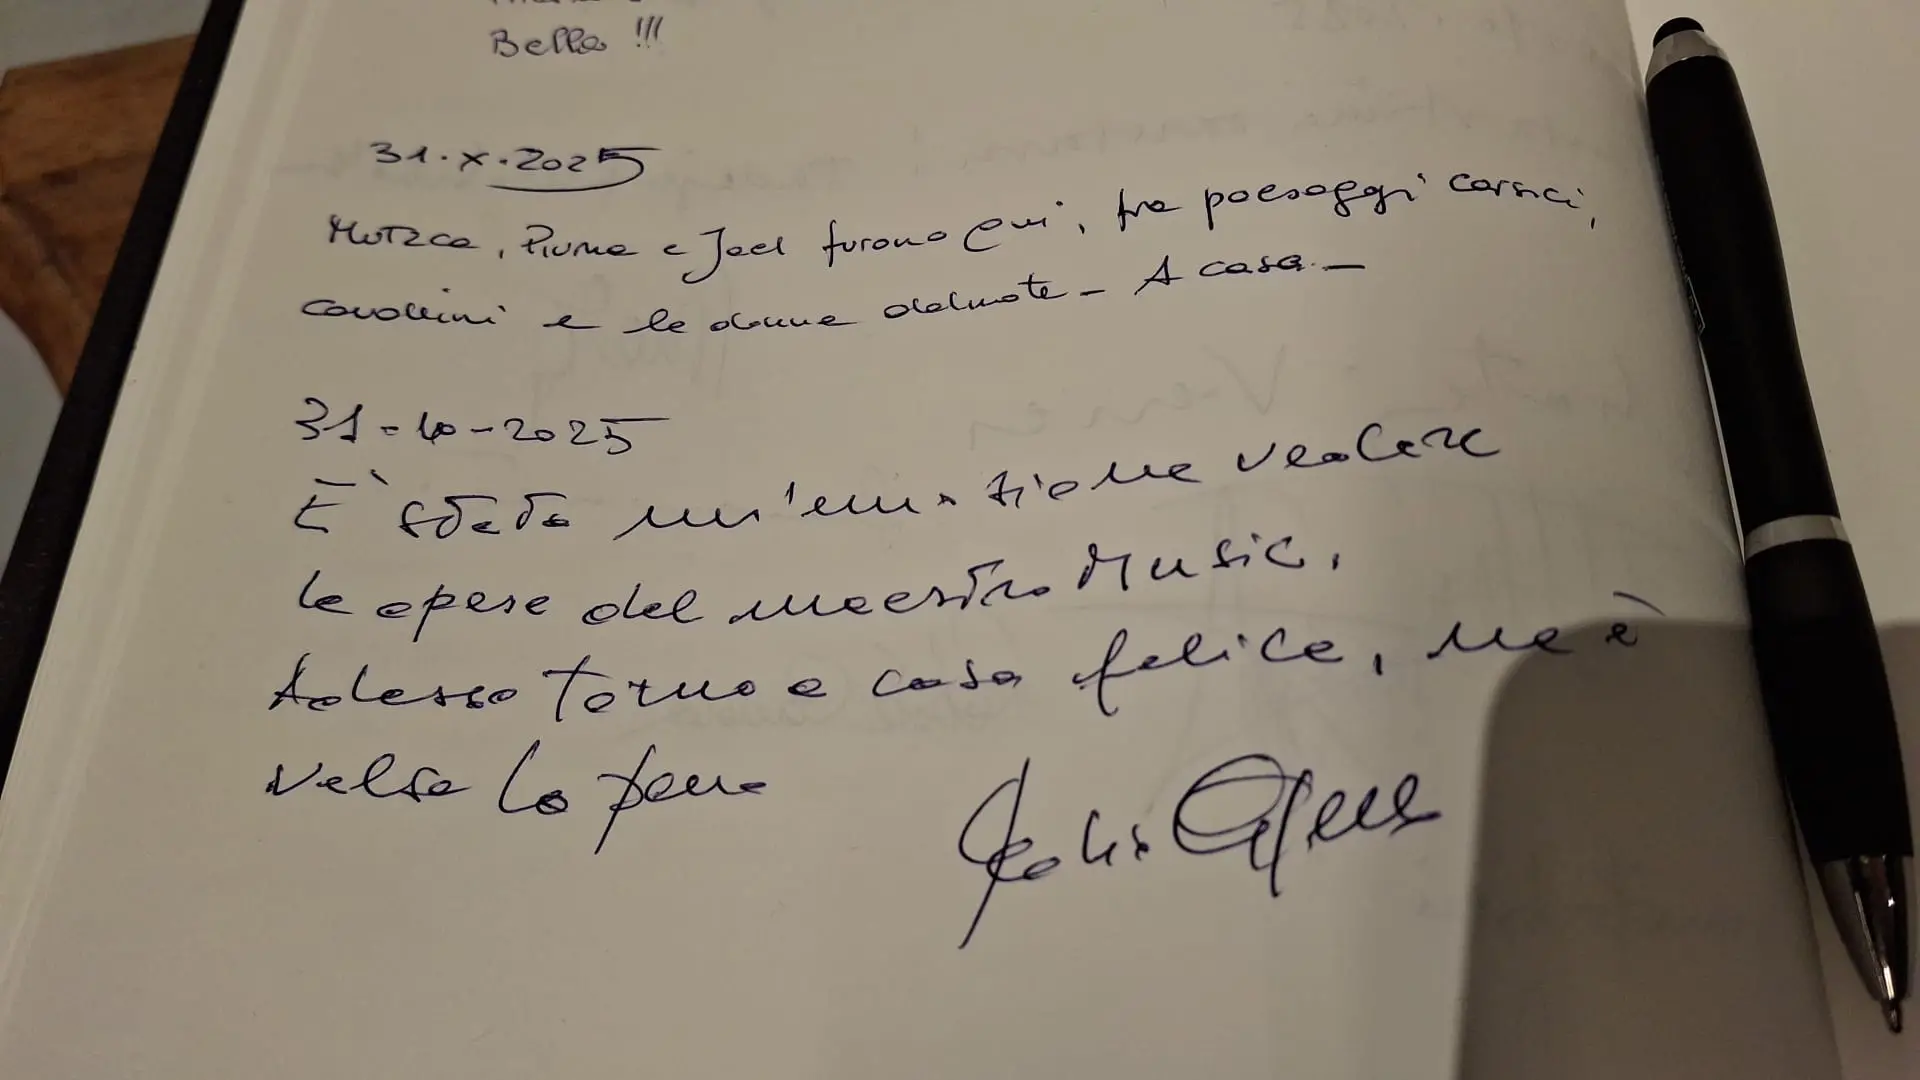 Bella !!!
31.X.2025
Piuma e Jael furono qui, fra paesaggi carsici,
cavallini e le donne dalmate - A casa. -
31-10-2025
E' stata un'emozione vedere
le opere del maestro Music.
Adesso torno a casa felice, ne è
valsa la pena